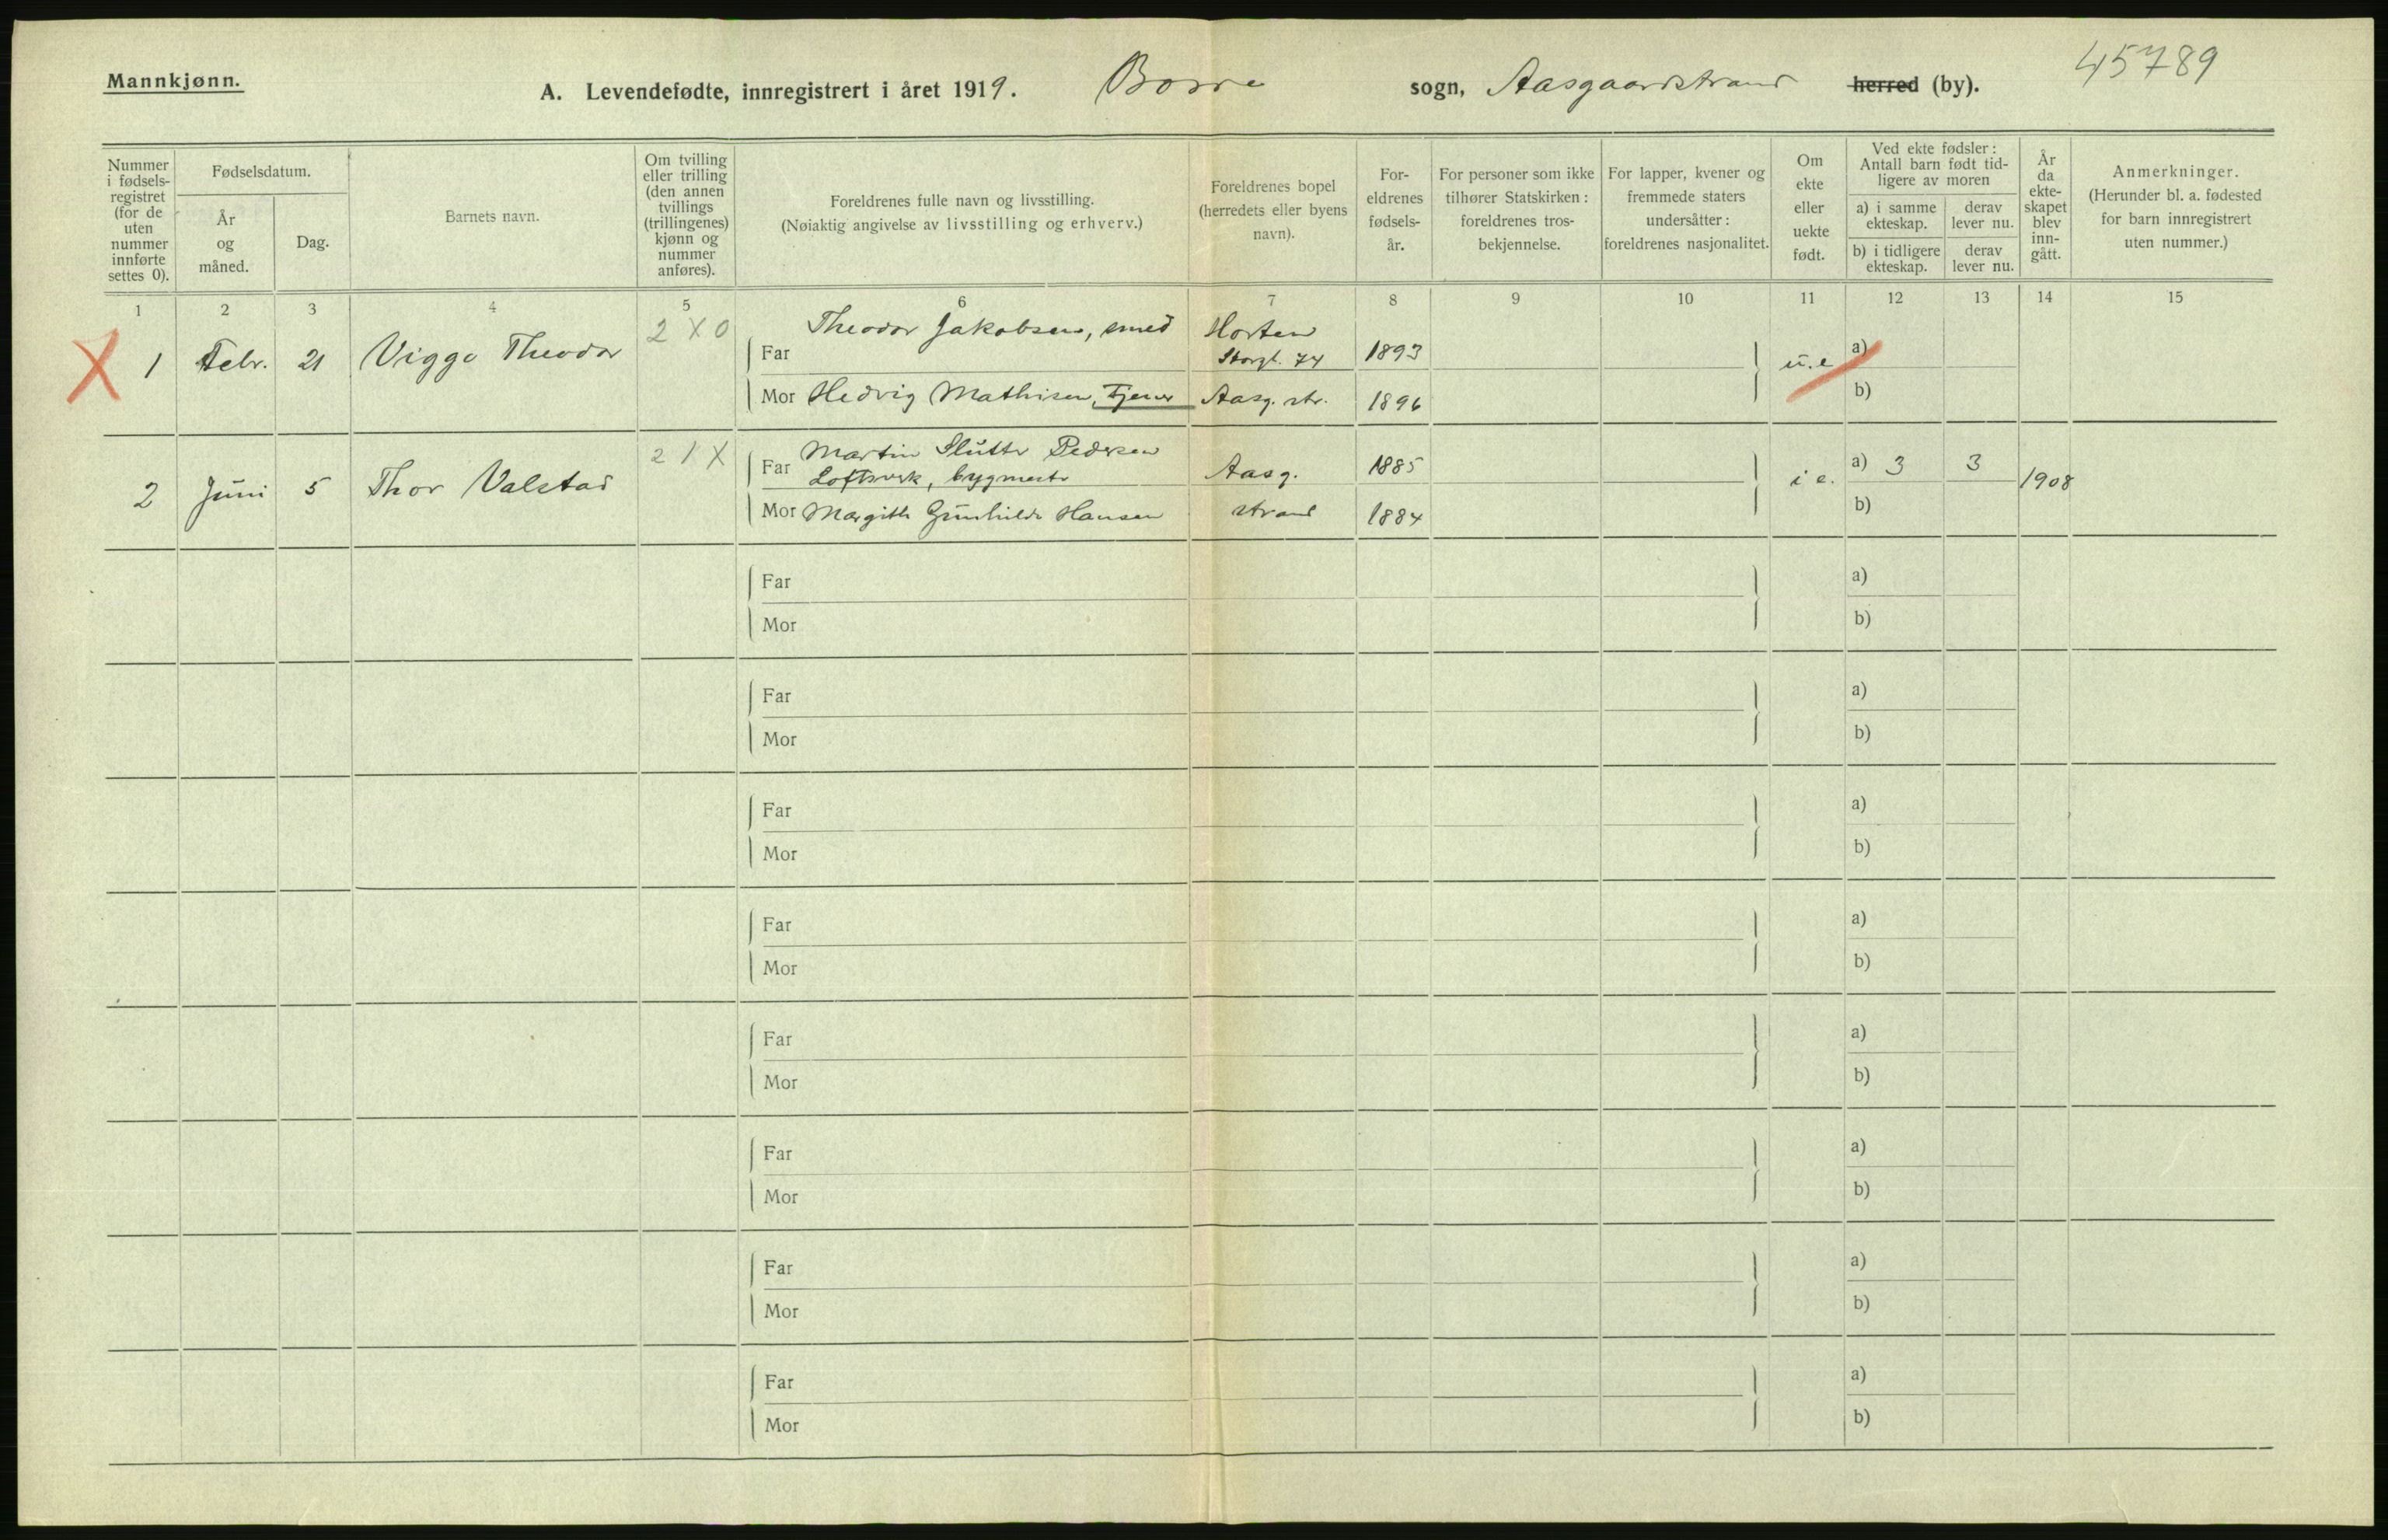 Mannkjønn.
A. Levendefødte, innregistrert i året 1919. Borre sogn, Aasgaardstrand herred (by).
45789
Nummer i fødsels-registret (for de uten nummer innførte settes 0).
Fødselsdatum.
År og måned.
Dag.
Barnets navn.
Om tvilling eller trilling (den annen tvillings (trillingenes) kjønn og nummer anføres).
Foreldrenes fulle navn og livsstilling.
(Nøiaktig angivelse av livsstilling og erhverv.)
Foreldrenes bopel (herredets eller byens navn).
For-eldrenes fødsels-år.
For personer som ikke tilhører Statskirken: foreldrenes tros-bekjennelse.
For lapper, kvener og fremmede staters undersåtter: foreldrenes nasjonalitet.
Om ekte eller uekte født.
Ved ekte fødsler: Antall barn født tid-ligere av moren
a) i samme ekteskap.
derav lever nu.
b) i tidligere ekteskap.
derav lever nu.
År da ekte-skapet blev inn-gått.
Anmerkninger.
(Herunder bl. a. fødested for barn innregistrert uten nummer.)
1 2 3 4 5 6 7 8 9 10 11 12 13 14 15
X 1 Febr. 21 Viggo Theodor 2 X 0
Far Theodor Jakobsen, smed Horten Storgt. 74 1893 u.e a)
Mor Hedvig Mathisen, Tjener Aasg. str. 1896 b)
2 Juni 5 Thor Valstad 2 1 X
Far Martin Slutter Pedersen bygmester Aasg. 1885 i e. a) 3 3 1908
Mor Margith Gunhilde Hansen strand 1884 b)
Far a)
Mor b)
Far a)
Mor b)
Far a)
Mor b)
Far a)
Mor b)
Far a)
Mor b)
Far a)
Mor b)
Far a)
Mor b)
Far a)
Mor b)